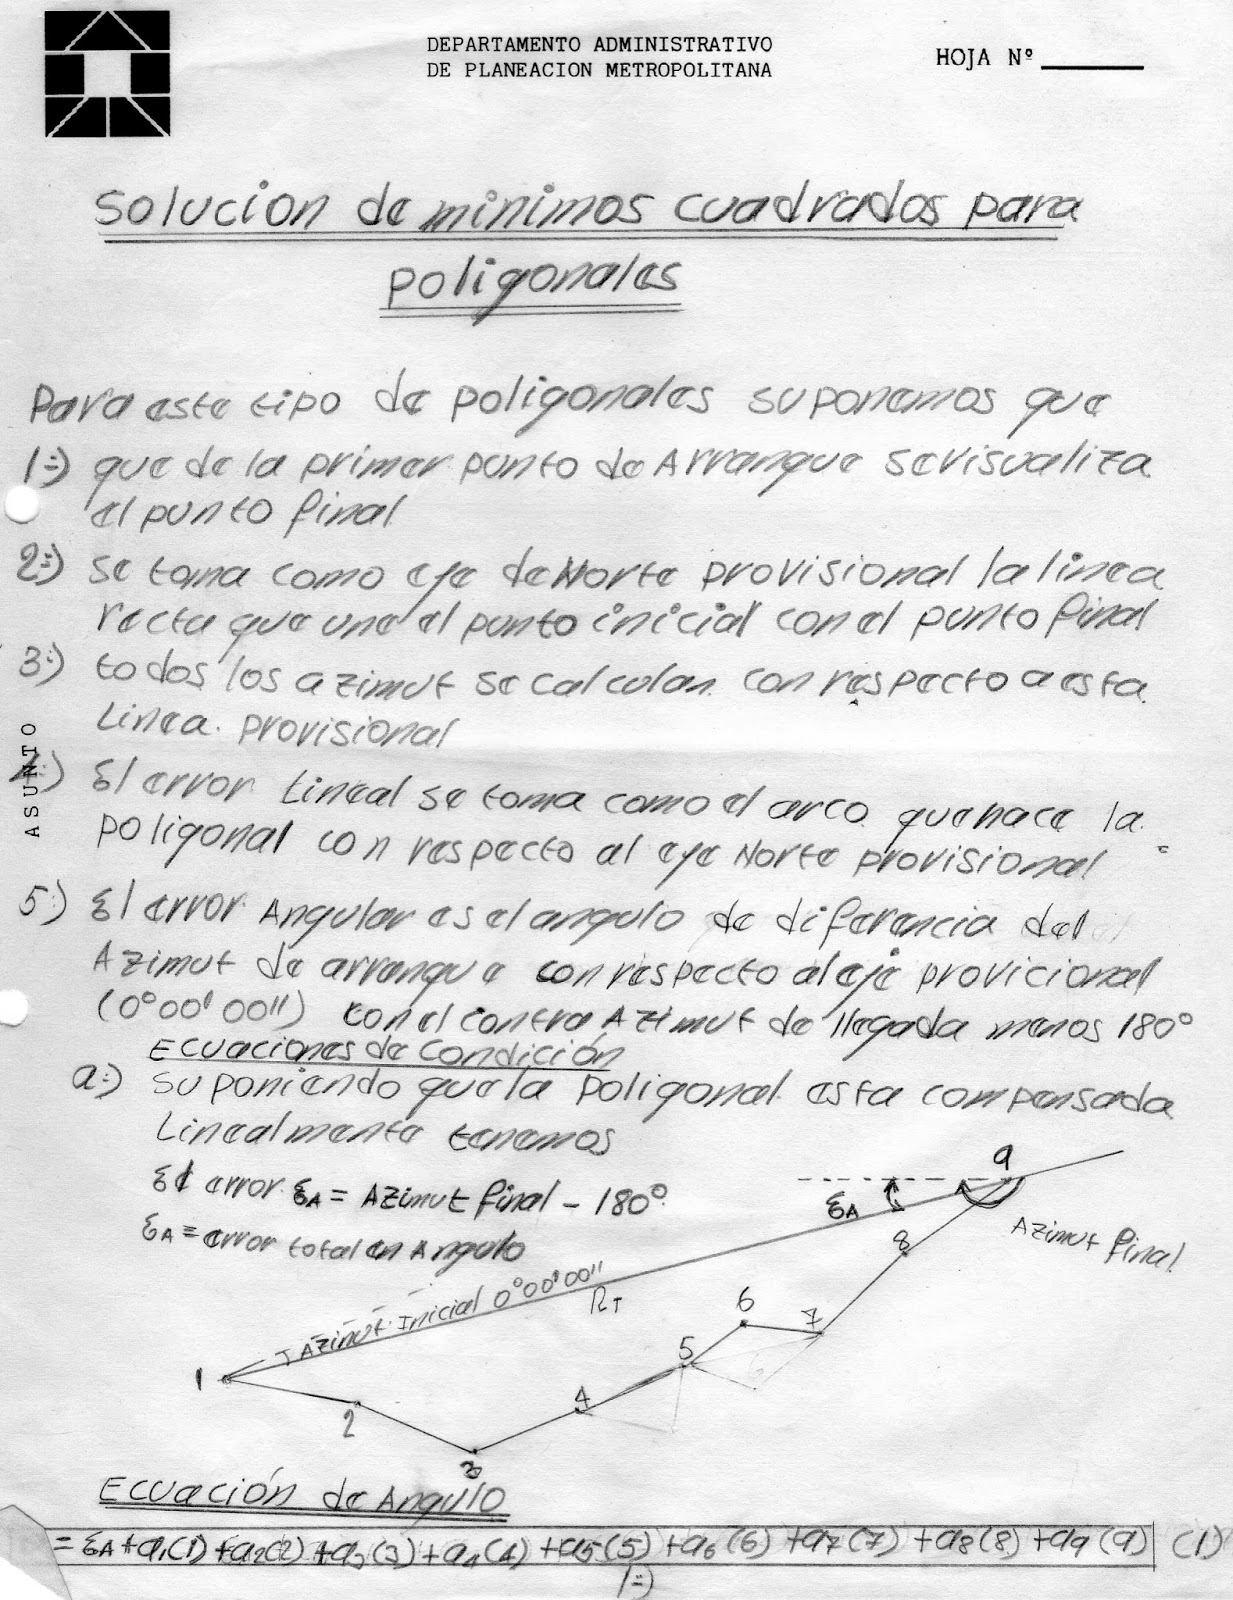 DEPARTAMENTO ADMINISTRATIVO
DE PLANEACION METROPOLITANA
HOJA Nº
Solucion de minimos cuadrados para
poligonales
Para este tipo de poligonales suponemos que
1:) que de la primer punto de Arranque se visualiza
el punto final
2:) Se toma como eje de Norte provisional la linea
recta que une el punto inicial con el punto final
3:) todos los azimut se calculan con respecto a esta
Linea provisional
4:) El error Lineal se toma como el arco que hace la
poligonal con respecto al eje Norte provisional
5:) El error Angular es el angulo de diferencia del
Azimut de arranque con respecto al eje provicional
(0°00'00") con el contra Azimut de llegada menos 180°
Ecuaciones de Condición
a:) Suponiendo que la poligonal esta compensada
Linealmente tenemos
El error EA = Azimut final - 180°
EA = error total en Angulo
ASUNTO
Azimut Inicial 0°00'00"
RT
EA
Azimut final
1
2
3
4
5
6
7
8
9
6
Ecuación de Angulo
= EA + a1(1) + a2(2) + a3(3) + a4(4) + a5(5) + a6(6) + a7(7) + a8(8) + a9(9) (1)
1:)